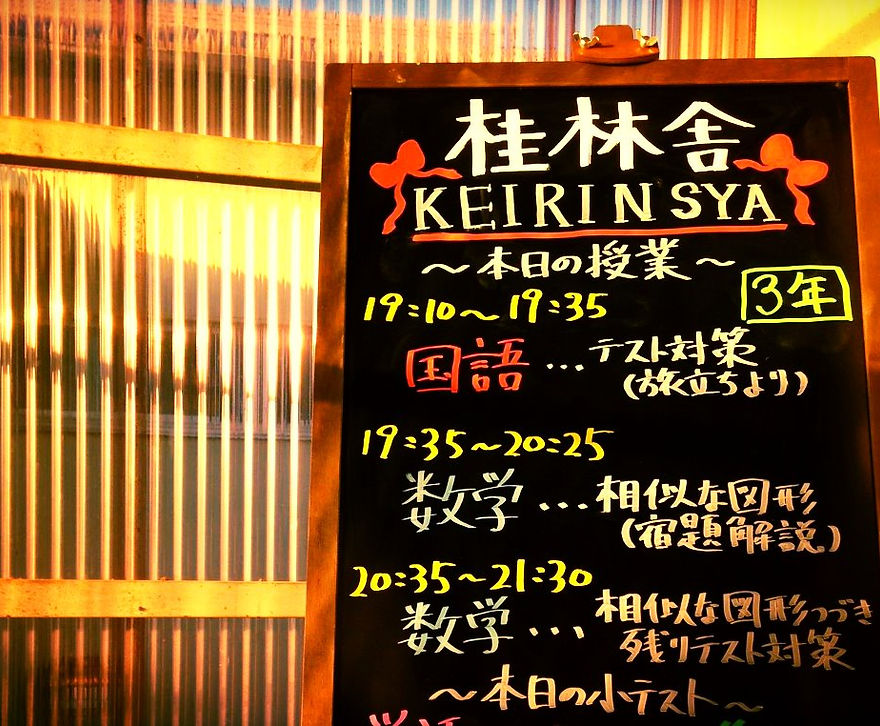 桂林舎
KEIRIN SYA
～本日の授業～
3年
19:10～19:35
国語…テスト対策
(旅立ちより)
19:35～20:25
数学…相似な図形
(宿題解説)
20:35～21:30
数学…相似な図形つづき
残りテスト対策
～本日の小テスト～